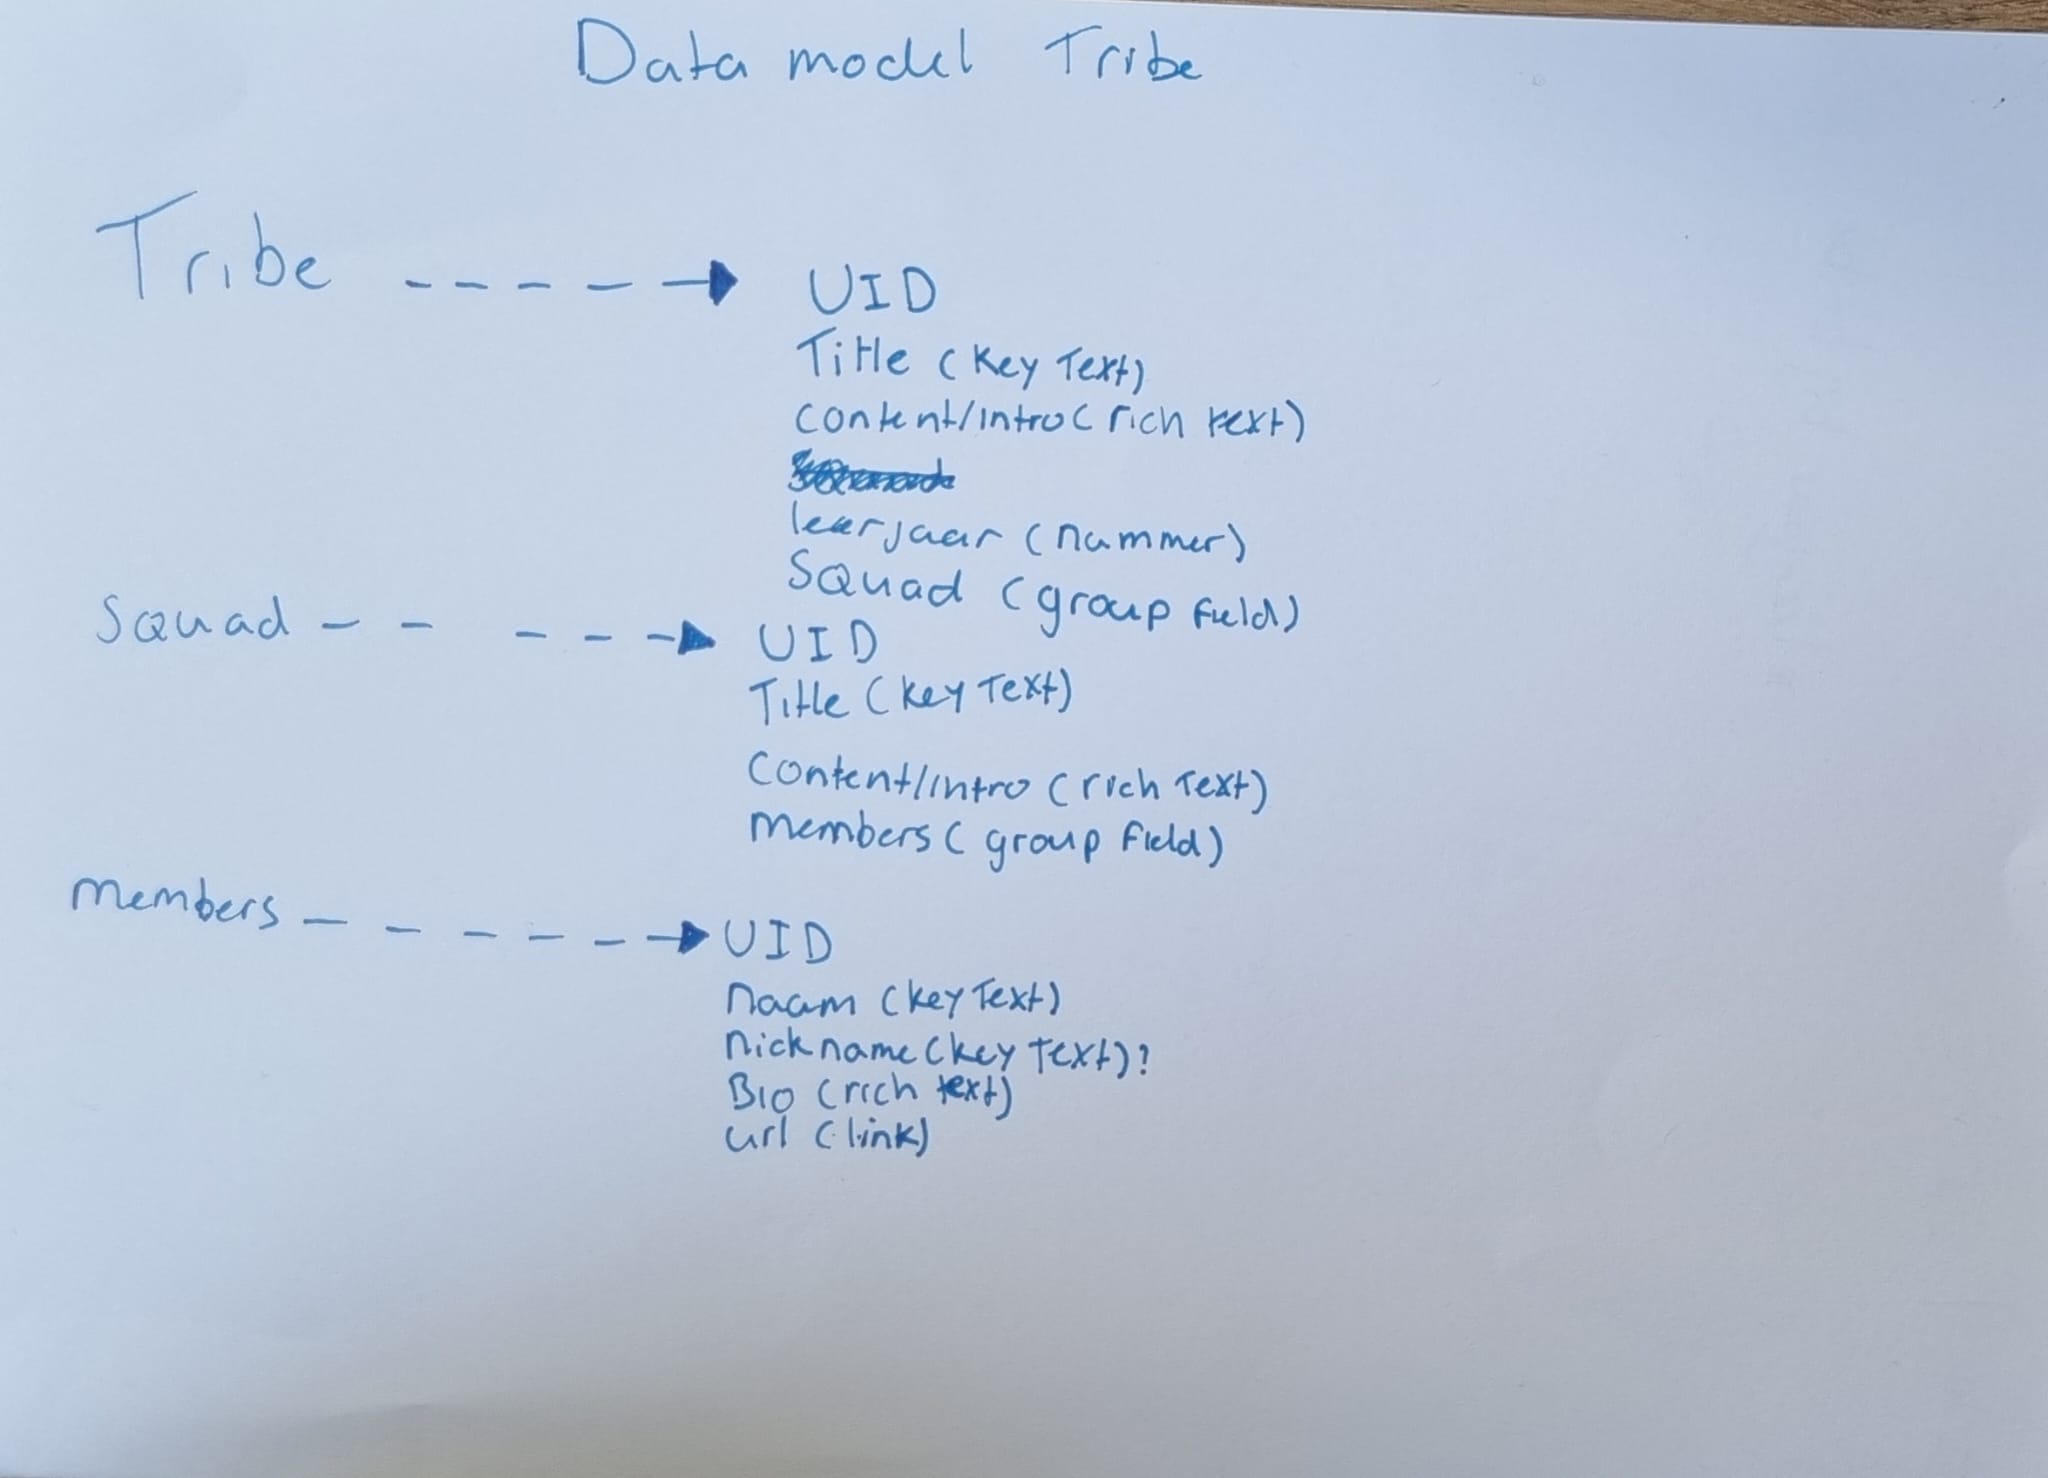 Data model Tribe
Tribe ----→ UID
Title (Key Text)
content/intro (rich text)
leerjaar (nummer)
Squad (group field)
Squad -- ---→ UID
Title (key Text)
Content/intro (rich Text)
members (group field)
members -----→ UID
naam (key Text)
nickname (key Text)?
Bio (rich text)
url (link)